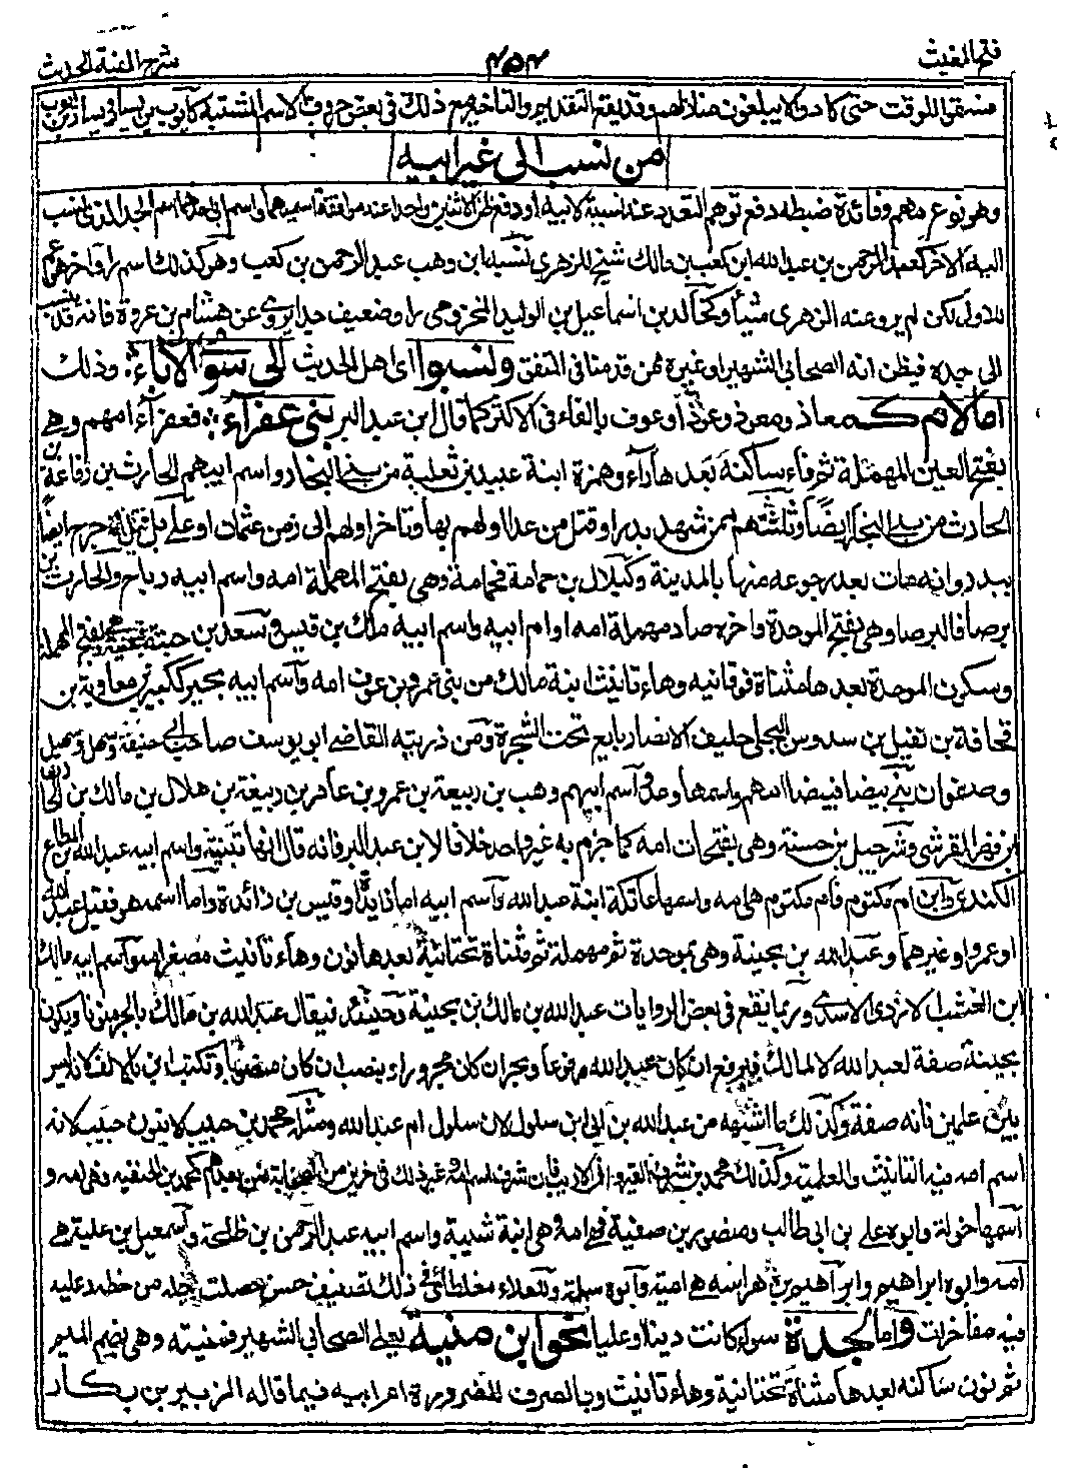 فتح المغيث
٤٥٣
شرح الفية الحديث
حتى كادوا لا يبلغون منازلهم وقد يقع التقديم والتأخير مع ذلك في بعض حروف الاسم المشتبه كأيوب بن سيار
من نسب الى غير ابيه
وهو نوع مهم وفائدة ضبطه دفع توهم التعدد عند نسبته لابيه او دفع ظن الاثنين واحدا عند موافقة اسميهما واسم ابى احدهما اسم الجد الذي نسب
اليه الآخر كعبد الرحمن بن عبد الله ابن كعب بن مالك شيخ للزهري نسبه ابن وهب عبد الرحمن بن كعب وهو كذلك اسم راو آخر هو عم
للاول لكن لم يرو عنه الزهري شيئا وكخالد بن اسماعيل بن الوليد المخزومي راو ضعيف جدا يروي عن هشام بن عروة فانه قد ينسب
الى جده فيظن انه الصحابي الشهير او غيره ممن قدمنا في المتفق ونسبوا اي اهل الحديث الى سوى الآباء وذلك
اما لام كـ معاذ ومعوذ وعوذ او عوف بالفاء في الاكثر كما قال ابن عبد البر بني عفراء فعفراء امهم وهي
بفتح العين المهملة ثم فاء ساكنة بعدها راء وهمزة ابنة عبيد بن ثعلبة من بني النجار واسم ابيهم الحارث بن رفاعة بن
الحارث من بني النجار ايضا وثلثتهم ممن شهد بدرا وقتل من عدا اولهم بها وتأخر اولهم الى زمن عثمان او علي بل قيل انه جرح ايضا
ببدر وانه مات بعد رجوعه منها بالمدينة وكبلال بن حمامة فحمامة وهي بفتح المهملة امه واسم ابيه رباح والحارث بن
برصا فالبرصا وهي بفتح الموحدة وآخره صاد مهملة امه او ام ابيه واسم ابيه مالك بن قيس وسعد بن حبتة بفتح المهملة
وسكون الموحدة بعدها مثناة فوقانيه وهاء تانيث ابنة مالك من بني عمرو بن عوف امه واسم ابيه بحير ككبير بن معاوية بن
قحافة بن نفيل بن سدوس البجلي حليف الانصار بايع تحت الشجرة ومن ذريته القاضي ابو يوسف صاحب ابي حنيفة وسهل وسهيل
وصفوان بني بيضا فبيضا امهم واسمها دعد واسم ابيهم وهب بن ربيعة بن عمرو بن عامر بن ربيعة بن هلال بن مالك بن
ابن فهر القرشي وشرحبيل بن حسنة وهي بفتحات امه كما جزم به غير واحد خلافا لابن عبد البر فانه قال انها تبنته واسم ابيه عبد الله بن المطاع
الكندي وابن ام مكتوم فام مكتوم هي امه واسمها عاتكة ابنة عبد الله واسم ابيه اما زايدة او قيس بن زائدة واما اسمه هو فقيل عبد الله
او عمرو او غيرهما وعبد الله بن بحينة وهي بموحدة ثم مهملة ثم مثناة تحتانية بعدها نون وهاء تانيث مصغر امه واسم ابيه مالك
ابن القشب الازدي الاسدي وربما يقع في بعض الروايات عبد الله بن مالك بن بحينة وحينئذ فيقال عبد الله بن مالك بالجر منونا ويكون
بحينة صفة لعبد الله لا لمالك فيرفع ان كان عبد الله مرفوعا ويجر ان كان مجرورا وينصب ان كان منصوبا وتكتب ابن بالالف لانه ليس
بين علمين فانه صفة وكذلك ما اشبهه من عبد الله بن ابي ابن سلول لان سلول ام عبد الله ومثله محمد بن حبيب لا ينون حبيب لانه
اسم امه فيه التانيث والعلمية وكذلك محمد بن شرف القيرواني الاديب فان شرف اسم امه في غير ذلك في آخرين من الصحابة فمن بعدهم كمحمد بن الحنفيه وهي امه و
اسمها خولة وابوه علي بن ابي طالب ومنصور بن صفية فهي امه وهي ابنة شيبة واسم ابيه عبد الرحمن بن طلحة واسمعيل بن علية هي
امه وابوه ابراهيم وابراهيم بن هراسه هي امه وابوه سلمة وللعلاء مغلطائي في ذلك تصنيف حسن حصلت جله من خطه عليه
فيه مؤاخذات واما لجدة سواء كانت دنيا او عليا نحو ابن منية يعلى الصحابي الشهير فمنيته وهي بضم الميم
ثم نون ساكنه بعدها مثناة تحتانية وهاء تانيث وبالصرف للضرورة ام ابيه فيما قاله الزبير بن بكار